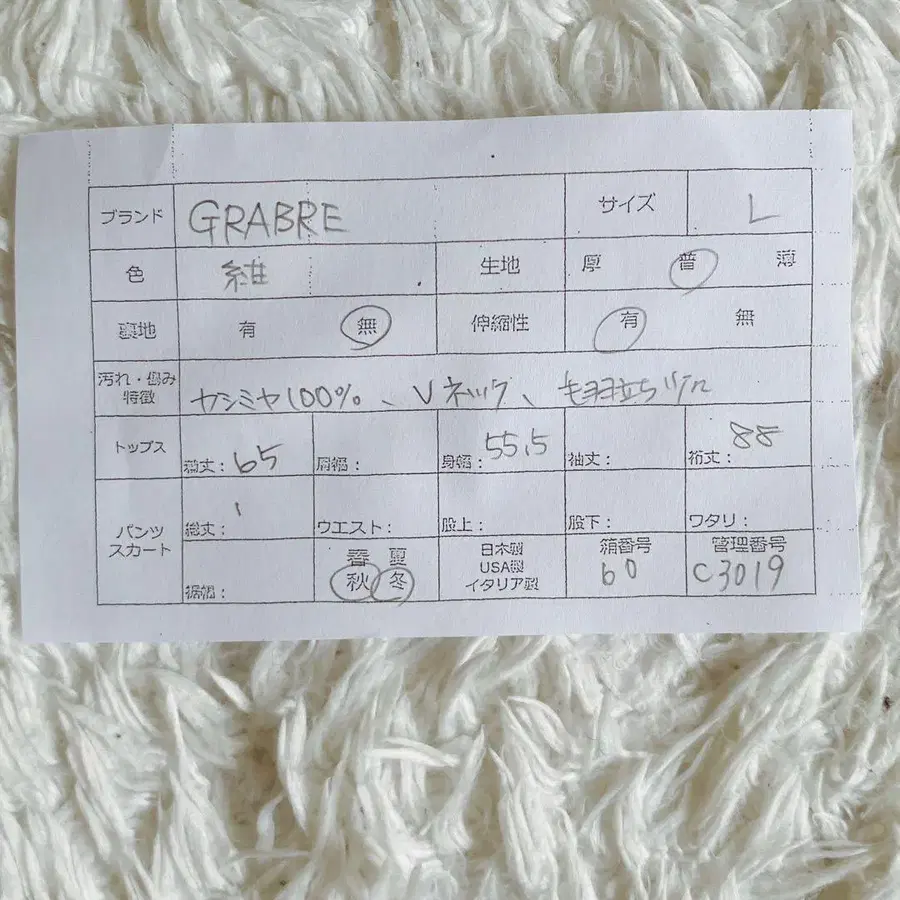 ブランド GRABRE サイズ L
色 生地 厚 普 薄
裏地 有 無 伸縮性 有 無
汚れ・傷み
特徴 カシミヤ100%、Vネック、毛羽立ち
トップス 着丈: 65 肩幅: 身幅: 55.5 袖丈: 裄丈: 88
パンツ
スカート 総丈: ウエスト: 股上: 股下: ワタリ:
裾幅: 春 夏 秋 冬 日本製 USA製 イタリア製 箱番号 60 管理番号 C3019